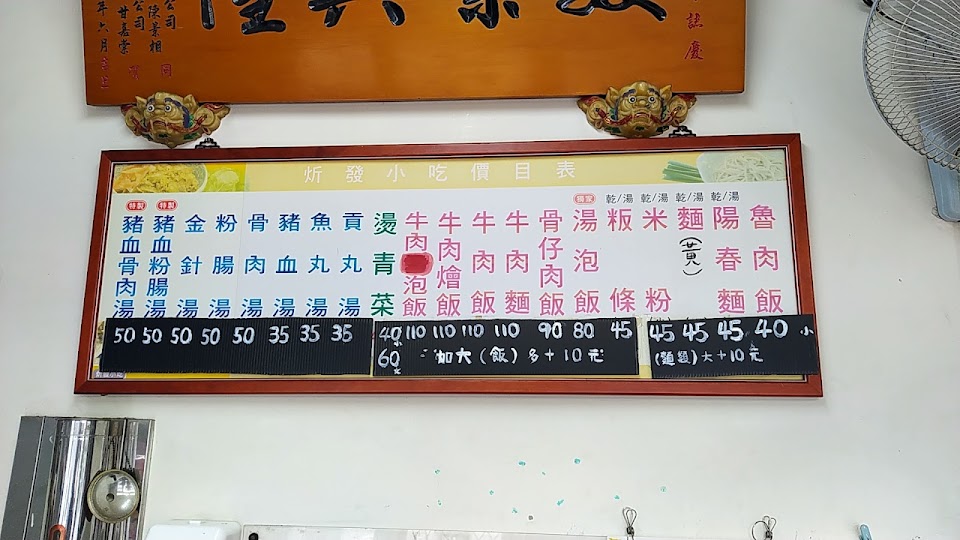 誌慶
公司 陳景相 同
公司 甘嘉榮 賀
年六月
炘發小吃價目表
魯肉飯
乾/湯 陽春麵
乾/湯 麵
乾/湯 米粉
乾/湯 粄條
獨家 湯泡飯
骨仔肉飯
牛肉麵
牛肉飯
牛肉燴飯
牛肉泡飯
燙青菜
貢丸湯
魚丸湯
豬血湯
骨肉湯
粉腸湯
金針湯
特製 豬血粉腸湯
特製 豬血骨肉湯
50 50 50 50 50 35 35 35
40小 110 110 110 110 90 80 45
60大 加大(飯)多+10元
45 45 45 40 小
(麵類)大+10元